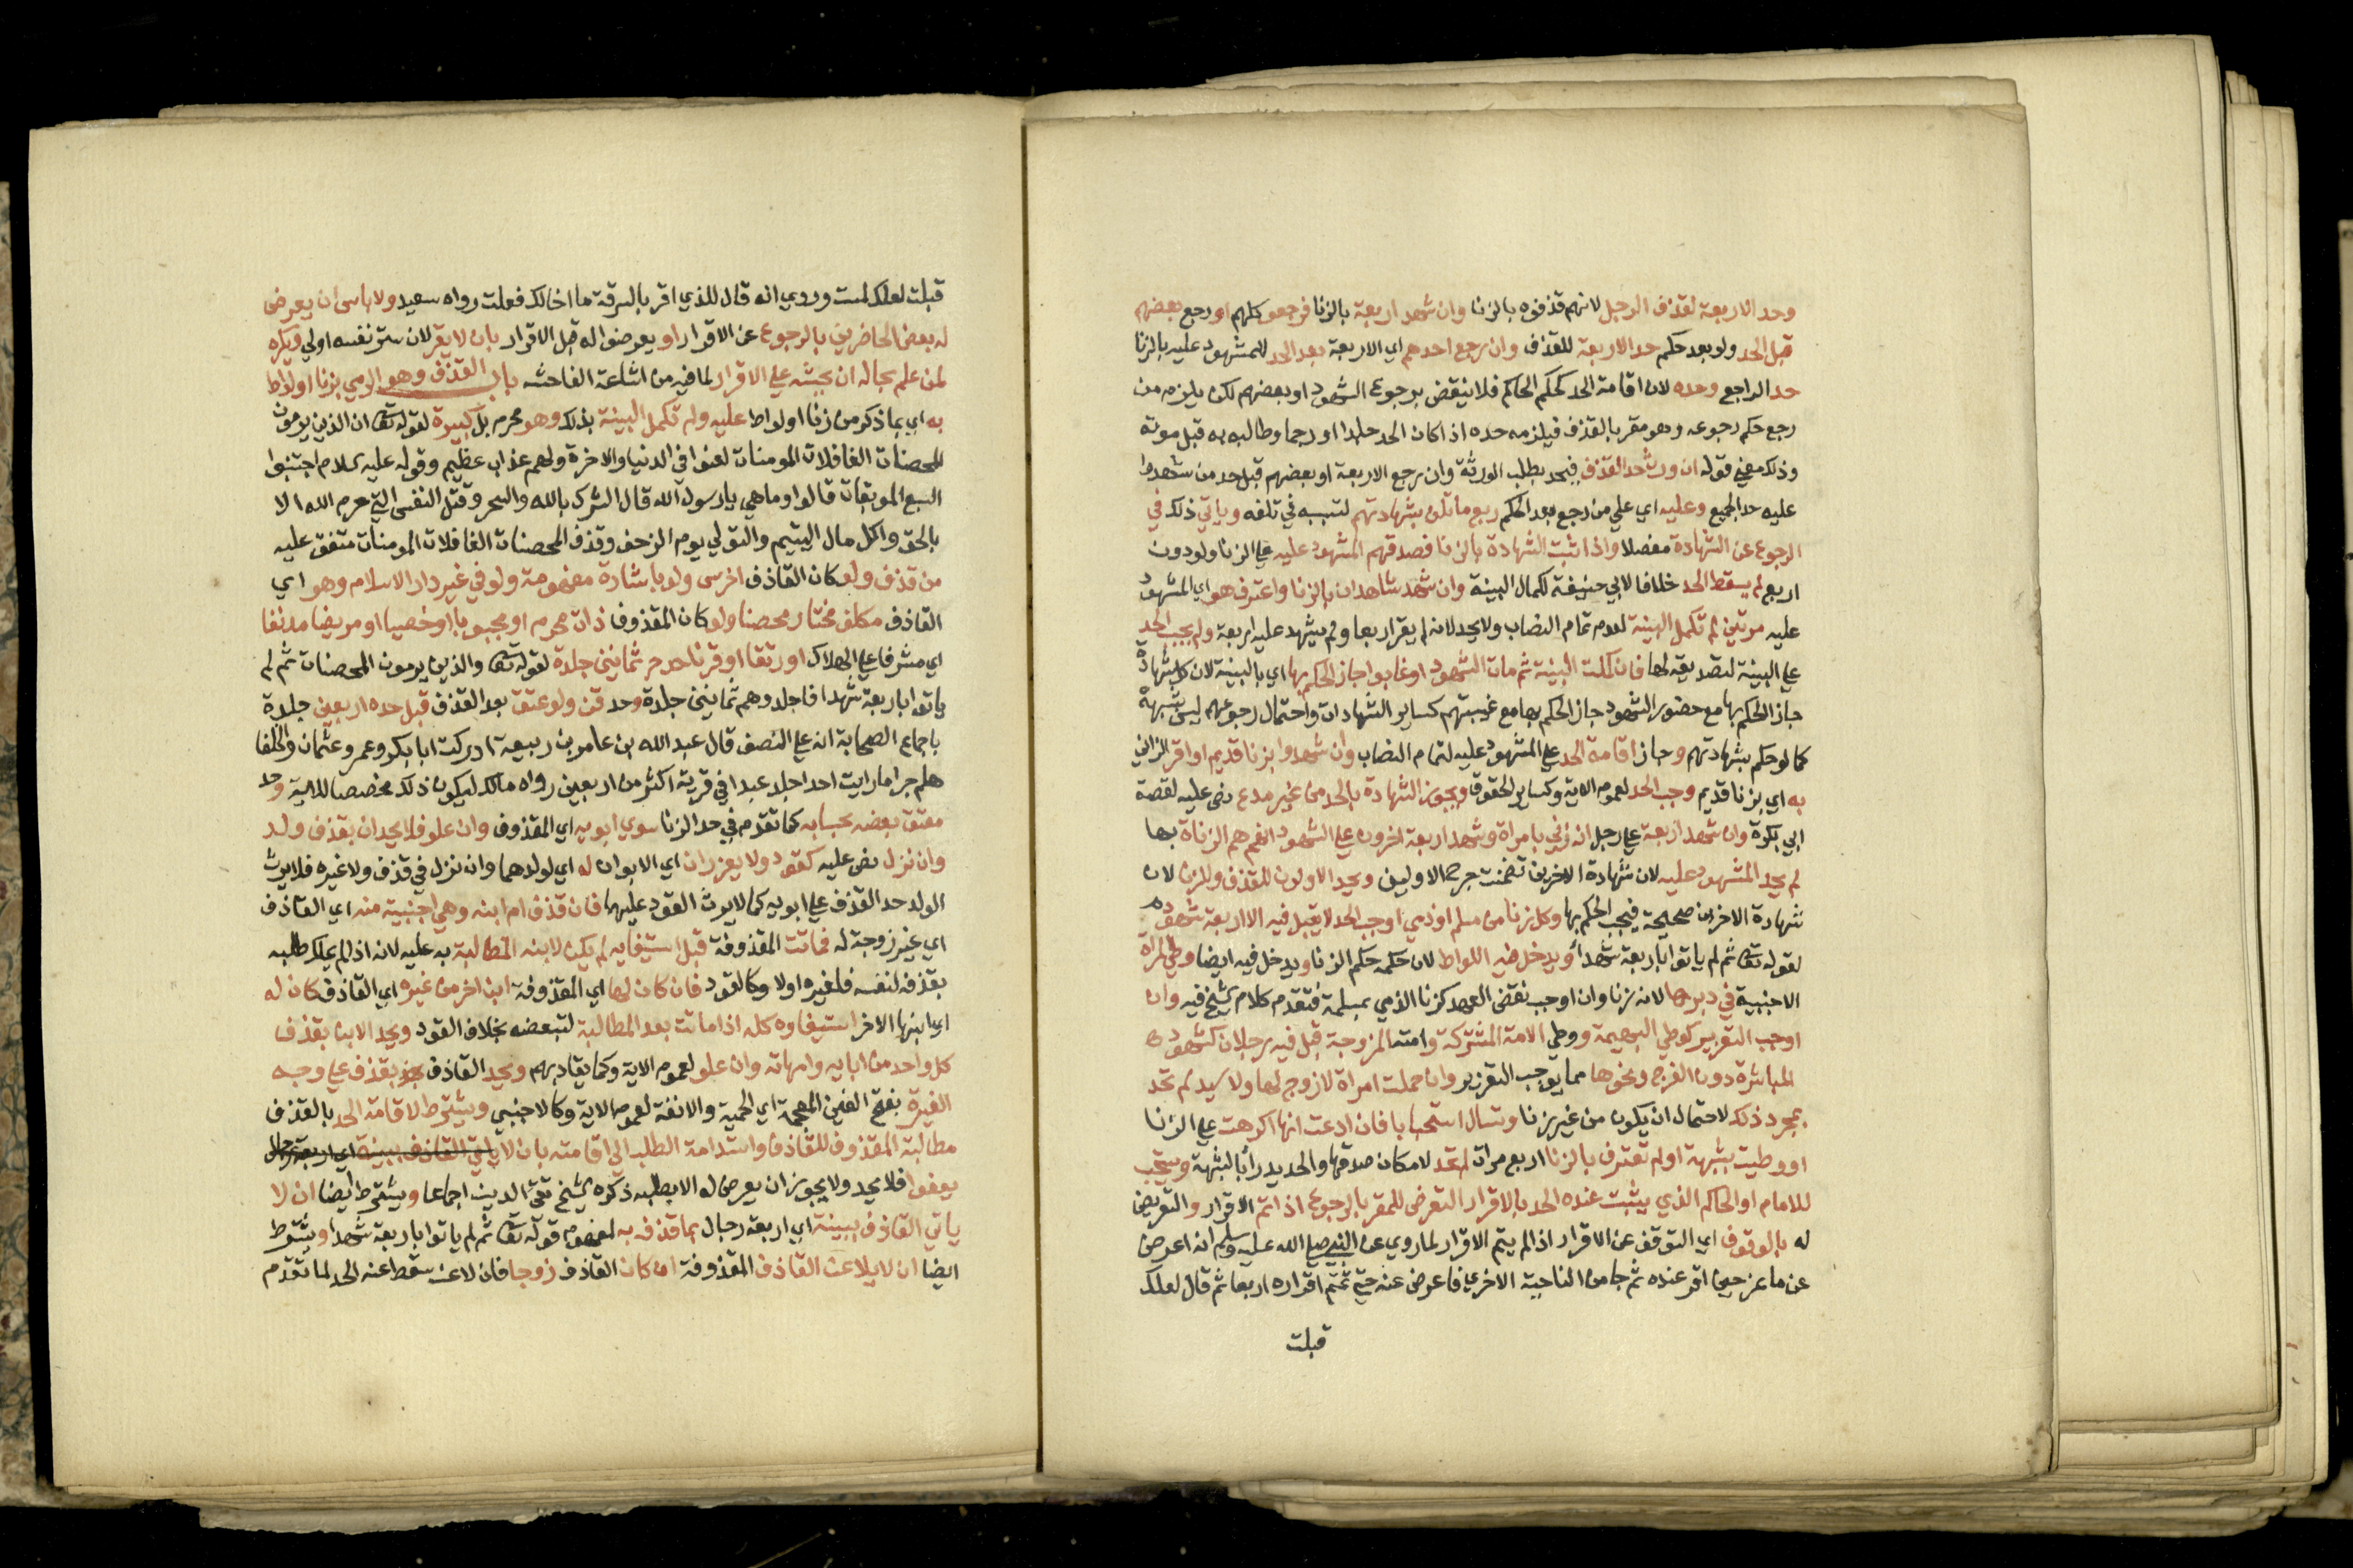 وحد الاربعة لقذف الرجل لانهم قذفوه بالزنا وان شهد اربعة بالزنا فرجعو كلهم او رجع بعضهم
قبل الحد ولو بعد حكم حد الاربعة للقذف وان رجع احدهم اي الاربعة بعد الحد للمشهود عليه بالزنا
حد الراجع وحده لان اقامة الحد كحكم الحاكم فلا ينقض برجوع الشهود او بعضهم لكن يلزم من
رجع حكم رجوعه وهو مقر بالقذف فيلزمه حده اذا كان الحد جلدا او رجما وطالبه به قبل موته
وذلك معني قوله ان ورث حد القذف فيحد بطلب الورثة وان رجع الاربعة او بعضهم قبل حد من شهدوا
عليه حد الجميع وعليه اي علي من رجع بعد الحكم ربع ما تلف بشهادتهم لتسببه في تلفه وياتي ذلك في
الرجوع عن الشهادة مفصلا واذا ثبت الشهادة بالزنا فصدقهم المشهود عليه علي الزنا ولو دون
اربع لم يسقط الحد خلافا لابي حنيفة لكمال البينة وان شهد شاهدان بالزنا واعترف هو اي المشهود
عليه مرتين لم تكمل البينة لعدم تمام النصاب ولا يحد لانه لم يقر اربعا ولم يشهد عليه اربعة ولم يجب الحد
علي البينة لتصديقه لها فان كملت البينة ثم مات الشهود او غابوا جاز الحكم بها اي بالبينة لان كل شهادة
جاز الحكم بها مع حضور الشهود جاز الحكم بها مع غيبتهم كساير الشهادات واحتمال رجوعهم ليس شبهة
كما لو حكم بشهادتهم وجاز اقامة الحد علي المشهود عليه لتمام النصاب وان شهدوا بزنا قديم او اقر الزاني
به اي بزنا قديم وجب الحد لعموم الاية وكساير الحقوق ويجوز الشهادة بالحد من غير مدع نص عليه لقصة
ابي بكرة وان شهد اربعة علي رجل انه زني بامراة وشهد اربعة اخرون علي الشهود انهم هم الزناة بها
لم يحد المشهود عليه لان شهادة الاخرين تضمنت جرح الاولين ويحد الاولون للقذف وللزنا لان
شهادة الاخرين صحيحة فيجب الحكم بها وكل زنا من مسلم او ذمي اوجب الحد لا يقبل فيه الا اربعة شهود
لقوله تعا ثم لم ياتوا باربعة شهدا ويدخل فيه اللواط لان حكمه حكم الزنا ويدخل فيه ايضا وطي المراه
الاجنبية في دبرها لانه زنا وان اوجب نقض العهد كزنا الذمي بمسلمة فتقدم كلام الشيخ فيه وان
اوجب التعزير كوطي البهيمة ووطي الامة المشتركة وامته المزوجة قبل فيه رجلان كشهود
المباشرة دون الفرج ونحوها مما يوجب التعزير وان حملت امراة لا زوج لها ولا سيد لم تحد
بمجرد ذلك لاحتمال ان يكون من غير زنا وتسال استحبابا فان ادعت انها اكرهت علي الزنا
او وطيت بشبهة او لم تعترف بالزنا اربع مرات لم تحد لامكان صدقها والحد يدرأ بالشبهة ويستحب
للامام او الحاكم الذي يثبت عنده الحد بالاقرار التعرض للمقر بالرجوع اذا تم الاقرار والتعريض
له بالوقوف اي التوقف عن الاقرار اذا لم يتم الاقرار لما روي عن النبي صلي الله عليه وسلم انه اعرض
عن ماعز حين اقر عنده ثم جا من الناحية الاخري فاعرض عنه حتي تمم اقراره اربعا ثم قال لعلك
قبلت
قبلت لعلك لمست وروي انه قال للذي اقر بالسرقة ما اخالك فعلت رواه سعيد ولا باس ان يعرض
له بعض الحاضرين بالرجوع عن الاقرار او يعرضوا له قبل الاقرار بان لا يقر لان ستر نفسه اولي ويكره
لمن علم بحاله ان يحثه علي الاقرار لما فيه من اشاعة الفاحشه باب القذف وهو الرمي بزنا او لواط
به اي بما ذكر من زنا او لواط عليه ولم تكمل البينة بذلك وهو محرم بل كبيرة لقوله تعا ان الذين يرمون
المحصنات الغافلات المومنات لعنوا في الدنيا والاخرة ولهم عذاب عظيم وقوله عليه السلام اجتنبوا
السبع الموبقات قالوا وما هي يا رسول الله قال الشرك بالله والسحر وقتل النفس التي حرم الله الا
بالحق واكل مال اليتيم والتولي يوم الزحف وقذف المحصنات الغافلات المومنات متفق عليه
من قذف ولو كان القاذف اخرس ولو باشارة مفهومة ولو في غير دار الاسلام وهو اي
القاذف مكلف مختار محصنا ولو كان المقذوف ذات محرم او مجبوبا او خصيا او مريضا مدنفا
اي مشرفا علي الهلاك او رتقا او قرنا حد حر ثمانين جلدة لقوله تعا والذين يرمون المحصنات ثم لم
ياتوا باربعة شهدا فاجلدوهم ثمانين جلدة وحد قن ولو عتق بعد القذف قبل حده اربعين جلدة
باجماع الصحابة انه علي النصف قال عبد الله بن عامر بن ربيعة ادركت ابا بكر وعمر وعثمان والخلفا
هلم جرا ما رايت احدا جلد عبدا في قرية اكثر من اربعين رواه مالك ليكون ذلك مخصصا للاية وحد
معتق بعضه بحسابه كما تقدم في حد الزنا سوي ابويه اي المقذوف وان علو فلا يحدان بقذف ولد
وان نزل نص عليه كقود ولا يعزران اي الابوان له اي لولدهما وان نزل في قذف ولا غيره فلا يرث
الولد حد القذف علي ابويه كما لا يرث القود عليهما فان قذف ام ابنه وهي اجنبية منه اي القاذف
اي غير زوجة له فماتت المقذوفة قبل استيفايه لم يكن لابنه المطالبة به عليه لانه اذا لم يملك طلبه
بقذفه لنفسه فلغيره اولا وكالقود فان كان لها اي المقذوفة ابن اخر من غيره اي القاذف كان له
اي ابنها الاخر استيفاوه كله اذا ماتت بعد المطالبة لتبعضه بخلاف القود ويحد الابن بقذف
كل واحد من ابايه وامهاته وان علو لعموم الاية وكما يقاد بهم ويحد القاذف بقذف علي وجه
الغيرة بفتح الغين المعجمة اي الحمية والانفة لعموم الاية وكالاجنبي ويشترط لاقامة الحد بالقذف
مطالبة المقذوف للقاذف واستدامة الطلب الي اقامته بان لا ياتي القاذف ببينة اي اربعة رجال
يعفوا فلا يحد ولا يجوز ان يعرض له الا بطلبه ذكره الشيخ تقي الدين اجماعا ويشترط ايضا ان لا
ياتي القاذف ببينة اي اربعة رجال بما قذف به لمفهوم قوله تعا ثم لم ياتوا باربعة شهدا ويشترط
ايضا ان لا يلاعن القاذف المقذوفة ان كان القاذف زوجا فان لاعن سقط عنه الحد لما تقدم